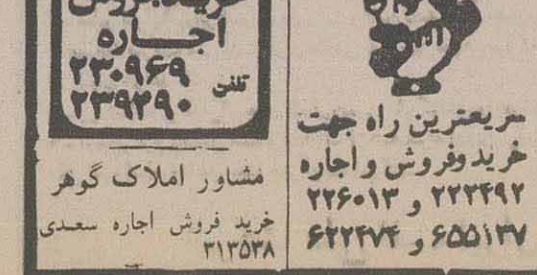 سریعترین راه جهت
خرید وفروش و اجاره
۲۲۳۴۹۲ و ۲۲۶۰۱۳
۶۵۵۱۳۷ و ۶۲۲۴۷۴
خرید.فروش
اجاره
تلفن
۲۳۰۹۶۹
۲۳۹۲۹۰
مشاور املاک گوهر
خرید فروش اجاره سعدی
۳۱۳۵۳۸